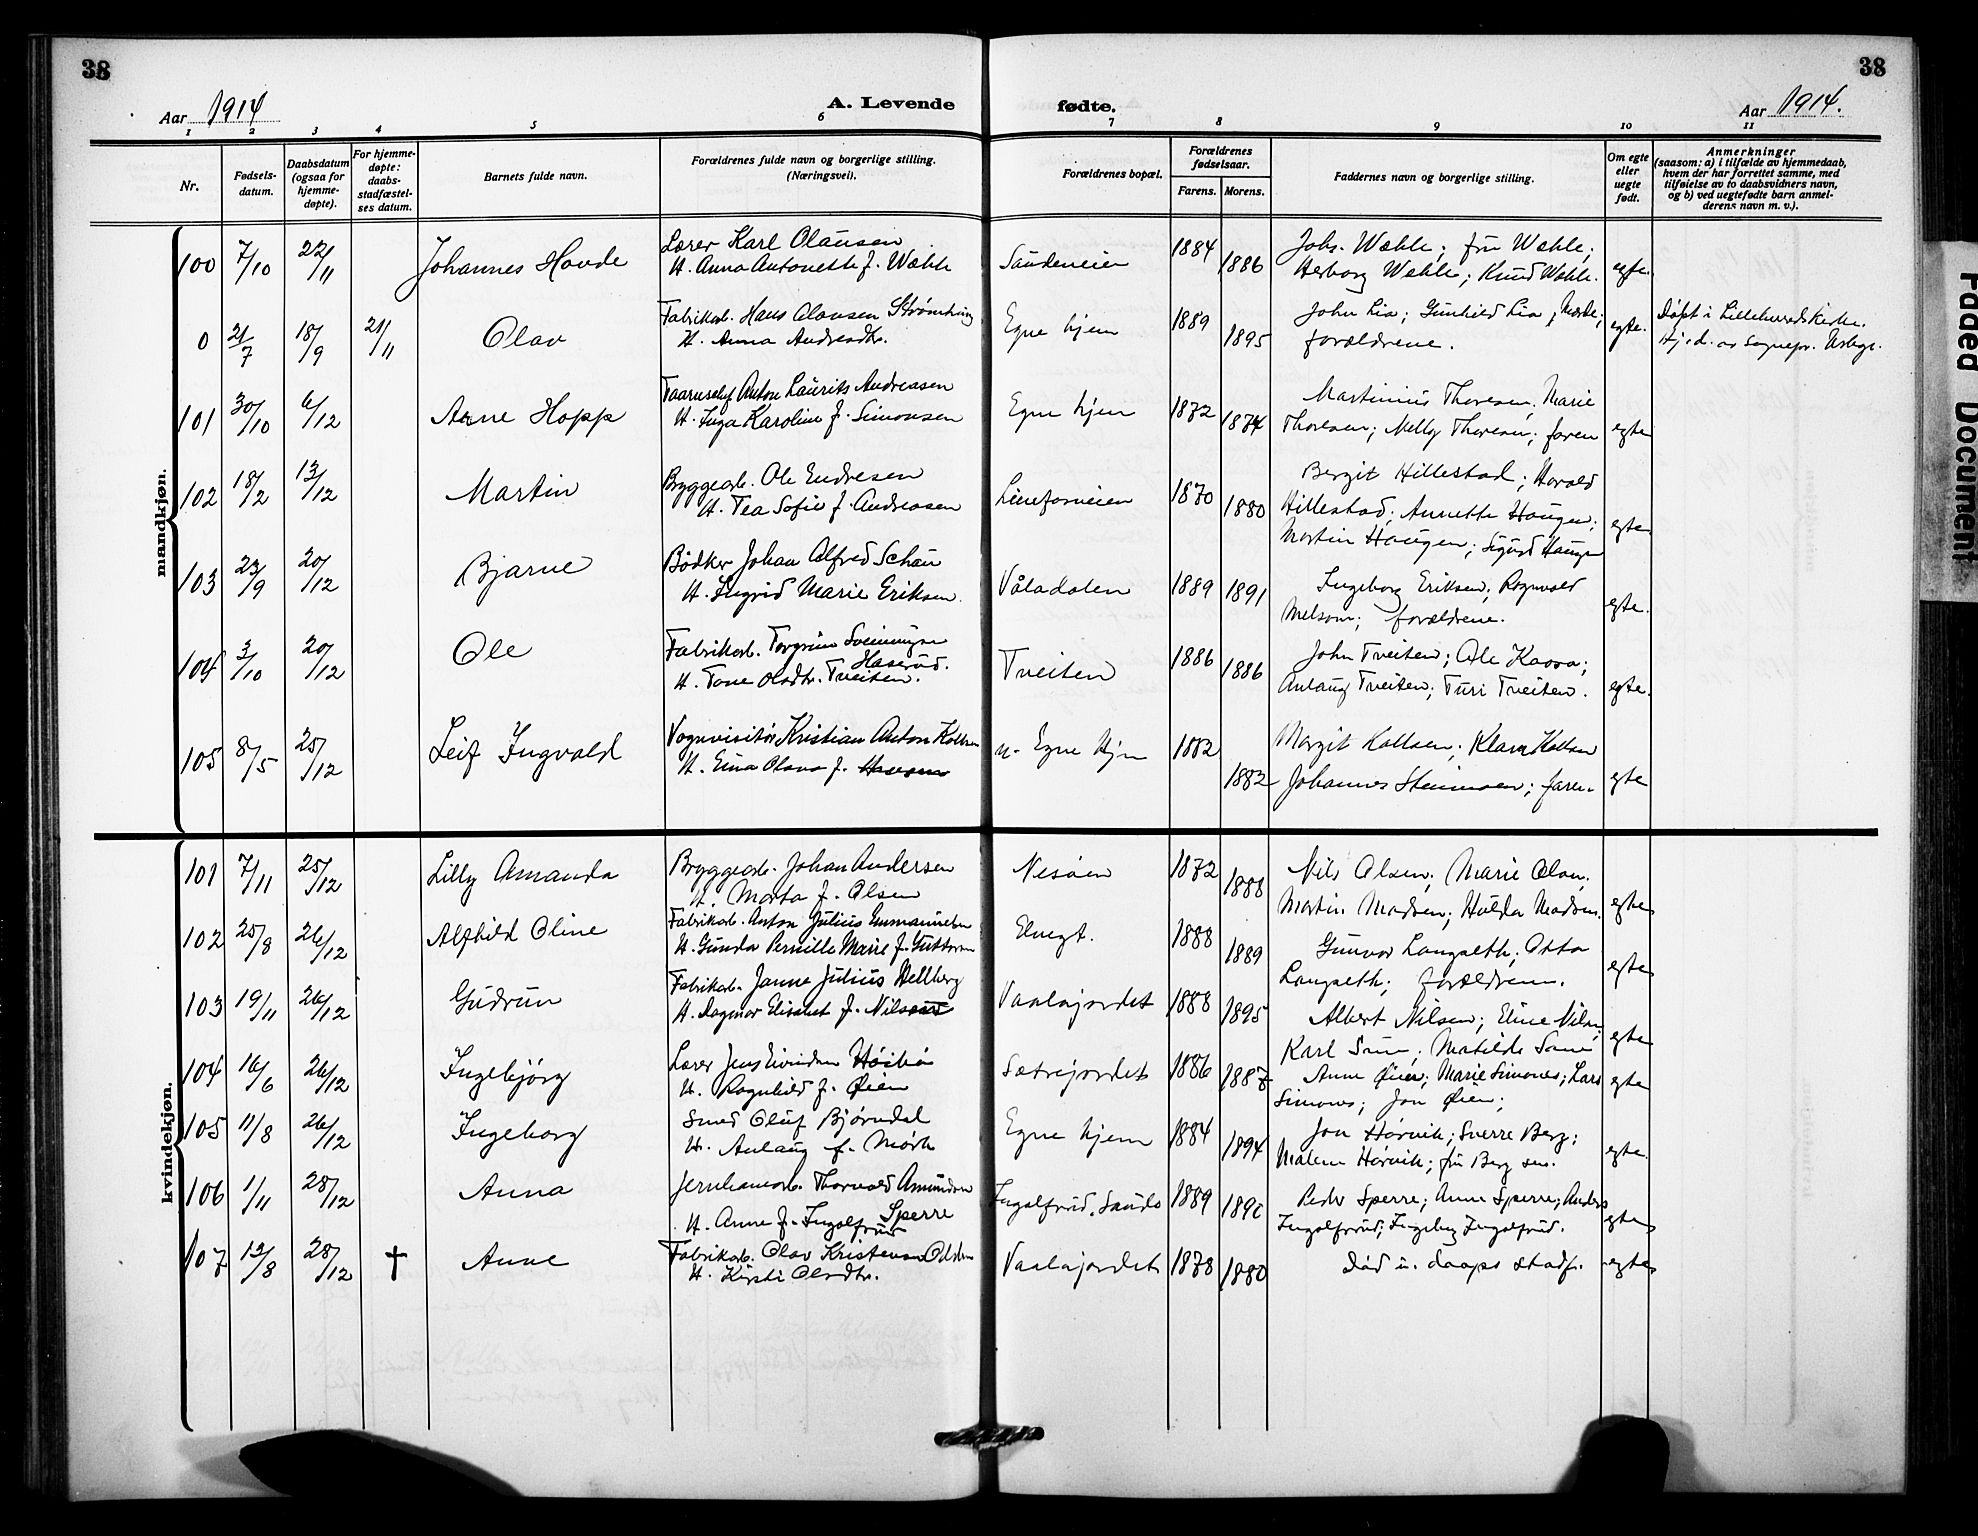 38
38
Aar 1914
A. Levende fødte.
Aar 1914.
1 2 3 4 5 6 7 8 9 10 11
Nr.
Fødsels-
datum.
Daabsdatum
(ogsaa for
hjemme-
døpte).
For hjemme-
døpte:
daabs-
stadfæstel-
ses datum.
Barnets fulde navn.
Forældrenes fulde navn og borgerlige stilling.
(Næringsvei).
Forældrenes bopæl.
Forældrenes
fødselsaar.
Farens. Morens.
Faddernes navn og borgerlige stilling.
Om egte
eller
uegte
født.
Anmerkninger
(saasom: a) i tilfælde av hjemmedaab,
hvem der har forrettet samme, med
tilføielse av to daabsvidners navn,
og b) ved uegtefødte barn anmel-
derens navn m. v.).
mandkjøn.
100 7/10 22/11 Johannes Hovde Lærer Karl Olausen Saudeveien 1884 Johs. Wæhle; fru Wæhle; egte.
H. Anna Antonette f. Wæhle 1886 Herborg Wæhle; Knud Wæhle.
0 21/7 18/9 21/11 Olav Fabrikarb. Hans Olavsen Egne hjem 1889 John Lia; Gunhild Lia; egte. Døpt i Lilleherreds Kirke.
H. Anna Andreadtr. 1895 forældrene. Hj. d. av Sognepr.
101 30/10 6/12 Arne Hopp Anton Laurits Andreassen Egne hjem 1872 Martinius Thoresen; Marie egte
H. Inga Karoline f. Simonsen 1874 Thoresen; Nelly Thoresen; faren
102 18/2 13/12 Martin Bryggearb. Ole Endresen 1870 Bergit Hillestad; Harald egte
H. Tea Sofie f. Andreasen 1880 Hillestad; Annette Haugen;
Martin Haugen; Sigurd Haugen
103 23/9 20/12 Bjarne Bødker Johan Alfred Schau Våladalen 1889 Ingeborg Eriksen; Ragnvald egte.
H. Ingrid Marie Eriksen. 1891 Melsom; forældrene.
104 3/10 20/12 Ole Fabrikarb. Torgrim Sveinungsen Haserød. Tveiten 1886 John Tveiten; Ole Kaasa; egte.
H. Tone Olsdtr. Tveiten. 1886 Anlaug Tveiten; Turi Tveiten.
105 8/5 25/12 Leif Ingvald Vognvisitør Kristian Anton Egne hjm 1882 Margit; Klara egte
H. Olava f. 1882 Johannes; faren
kvindekjøn.
101 7/11 25/12 Lilly Amanda Bryggearb. Johan Andersen Nesøen 1872 Nils Olsen; Marie Olsen; egte
H. Marta f. Olsen 1888 Martin Madsen; Hulda Madsen.
102 25/8 26/12 Alfhild Oline Fabrikarb. Anton Julius Emmanuelsen Elvegt. 1888 Gunvor Langseth; Otto egte
H. Gunda Pernille Marie f. Guttorm 1889 Langseth; forældrene.
103 19/11 26/12 Gudrun Fabrikarb. Janne Julius Hellberg Vaalajordet 1888 Albert Nilsen; Eline Nilsen; egte
H. Dagmar Elisabet f. Nilsen 1895 Karl; Matilde
104 16/6 26/12 Ingebjørg Lærer Jens Eivindsen Sætrejordet 1886 Anne Øien; Marie Simones; Lars egte
H. Ragnhild f. Øien 1887 Simones; Jon Øien;
105 11/8 26/12 Ingeborg Smed Oluf Bjørndal Egne hjem 1884 Jon Hørvik; Sverre Berg; egte.
H. Anlaug f. Mørk 1894 Malene Hørvik; fru Berg sen.
106 1/11 28/12 Anna Jernbanearb. Thorvald Amundsen Sperre Ingolfsrud. Saude 1889 Peder Sperre; Anne Sperre; Anders egte
H. Anne f. Ingolfsrud Ingolfsrud; Ingebg Ingolfsrud.
107 12/8 28/12 † Anne Fabrikarb. Olav Kristensen Vaalajordet 1878 død u. daaps stadf. egte
H. Kirsti Olavdtr. 1880
Faded Document